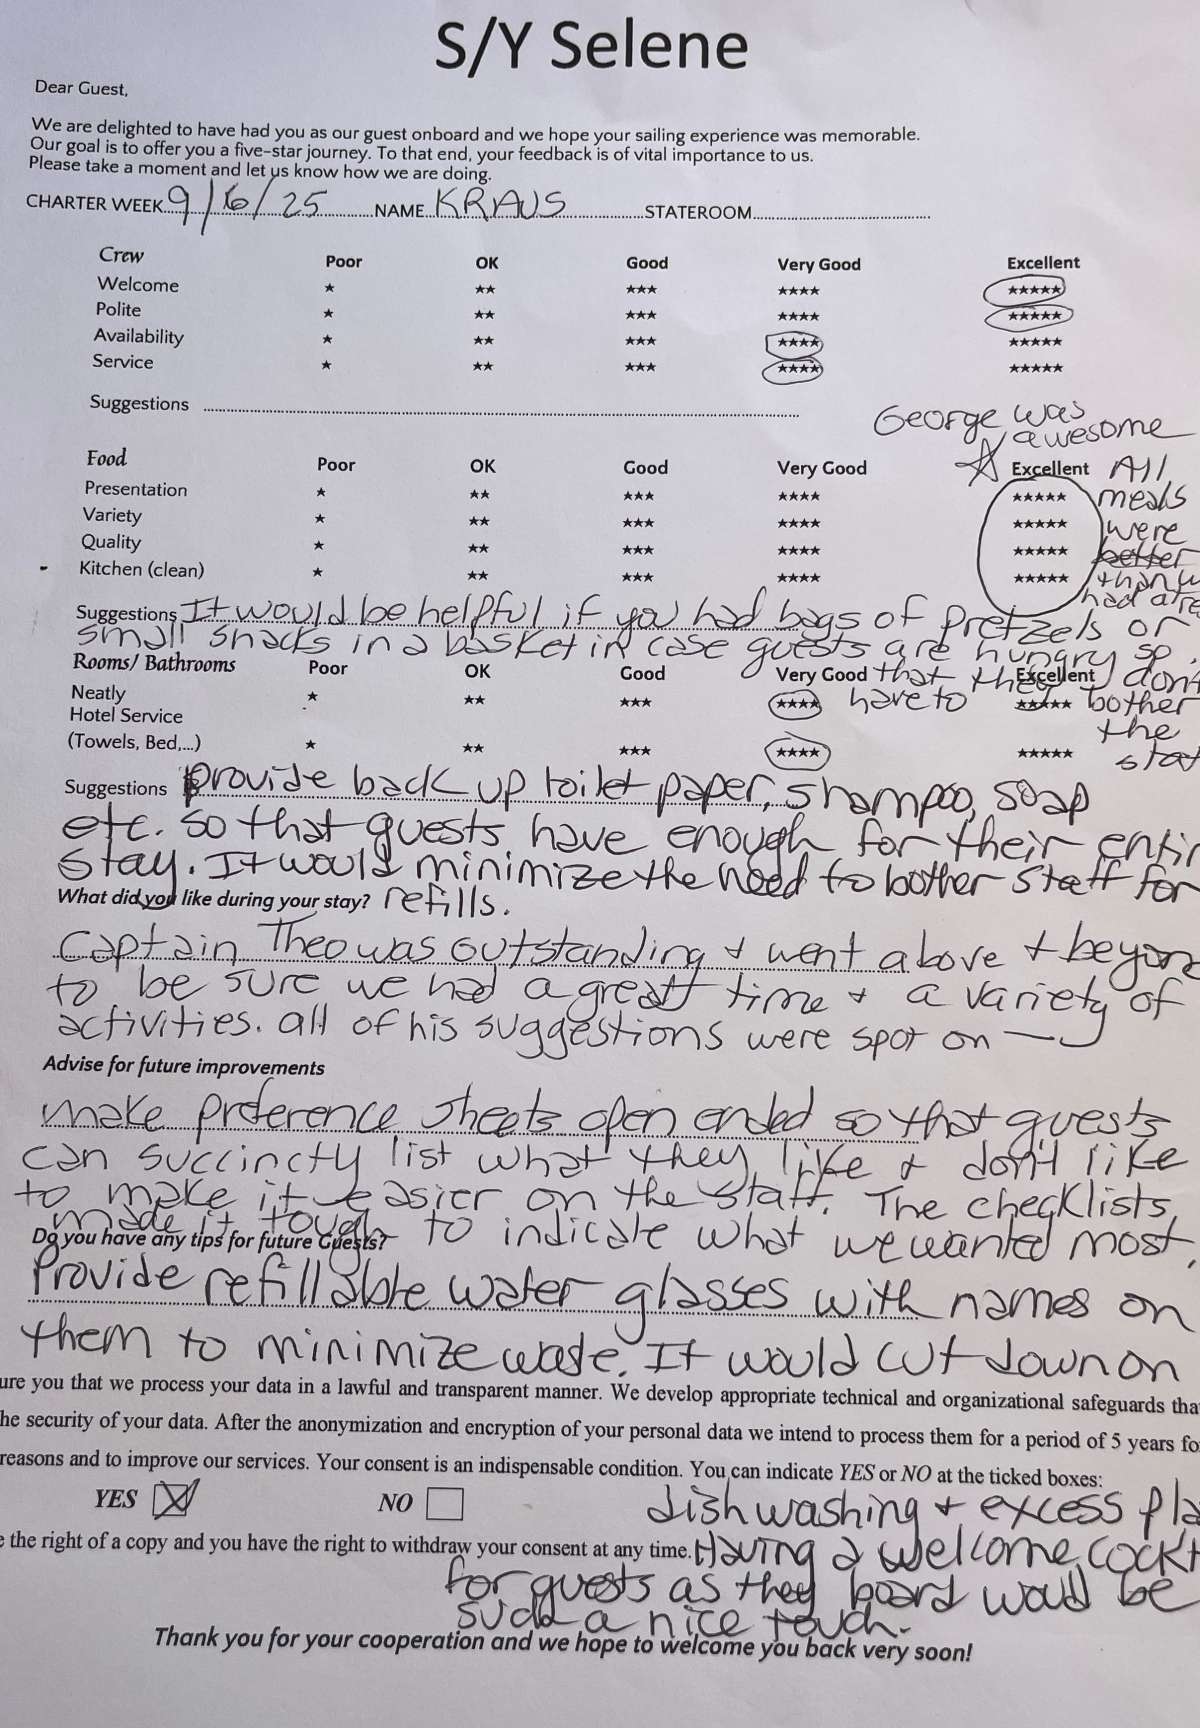 S/Y Selene
Dear Guest,
We are delighted to have had you as our guest onboard and we hope your sailing experience was memorable.
Our goal is to offer you a five-star journey. To that end, your feedback is of vital importance to us.
Please take a moment and let us know how we are doing.
CHARTER WEEK 9/6/25 NAME KRAUS STATEROOM
Crew Poor OK Good Very Good Excellent
Welcome ★ ★★ ★★★ ★★★★ ★★★★★
Polite ★ ★★ ★★★ ★★★★ ★★★★★
Availability ★ ★★ ★★★ ★★★★ ★★★★★
Service ★ ★★ ★★★ ★★★★ ★★★★★
Suggestions
George was
awesome
Food Poor OK Good Very Good Excellent
Presentation ★ ★★ ★★★ ★★★★ ★★★★★
Variety ★ ★★ ★★★ ★★★★ ★★★★★
Quality ★ ★★ ★★★ ★★★★ ★★★★★
Kitchen (clean) ★ ★★ ★★★ ★★★★ ★★★★★
All
meals
were
better
than
had
Suggestions It would be helpful if you had bags of pretzels or
small snacks in a basket in case guests are hungry so
that they don't
have to bother
the
Rooms/ Bathrooms Poor OK Good Very Good Excellent
Neatly ★ ★★ ★★★ ★★★★ ★★★★★
Hotel Service
(Towels, Bed,...) ★ ★★ ★★★ ★★★★ ★★★★★
Suggestions Provide back up toilet paper, shampoo, soap
etc. so that guests have enough for their
stay. It would minimize the need to bother staff for
refills.
What did you like during your stay?
Captain Theo was outstanding + went above +
to be sure we had a great time + a variety of
activities. all of his suggestions were spot on
Advise for future improvements
make preference sheets open ended so that guests
can succinctly list what they like + don't like
to make it easier on the staff. The checklists
made it tough to indicate what we wanted most.
Do you have any tips for future Guests?
Provide refillable water glasses with names on
them to minimize waste. It would cut down on
ure you that we process your data in a lawful and transparent manner. We develop appropriate technical and organizational safeguards tha
he security of your data. After the anonymization and encryption of your personal data we intend to process them for a period of 5 years fo
reasons and to improve our services. Your consent is an indispensable condition. You can indicate YES or NO at the ticked boxes:
YES NO
dishwashing + excess
e the right of a copy and you have the right to withdraw your consent at any time.
Having a welcome
for guests as they board would be
such a nice touch.
Thank you for your cooperation and we hope to welcome you back very soon!